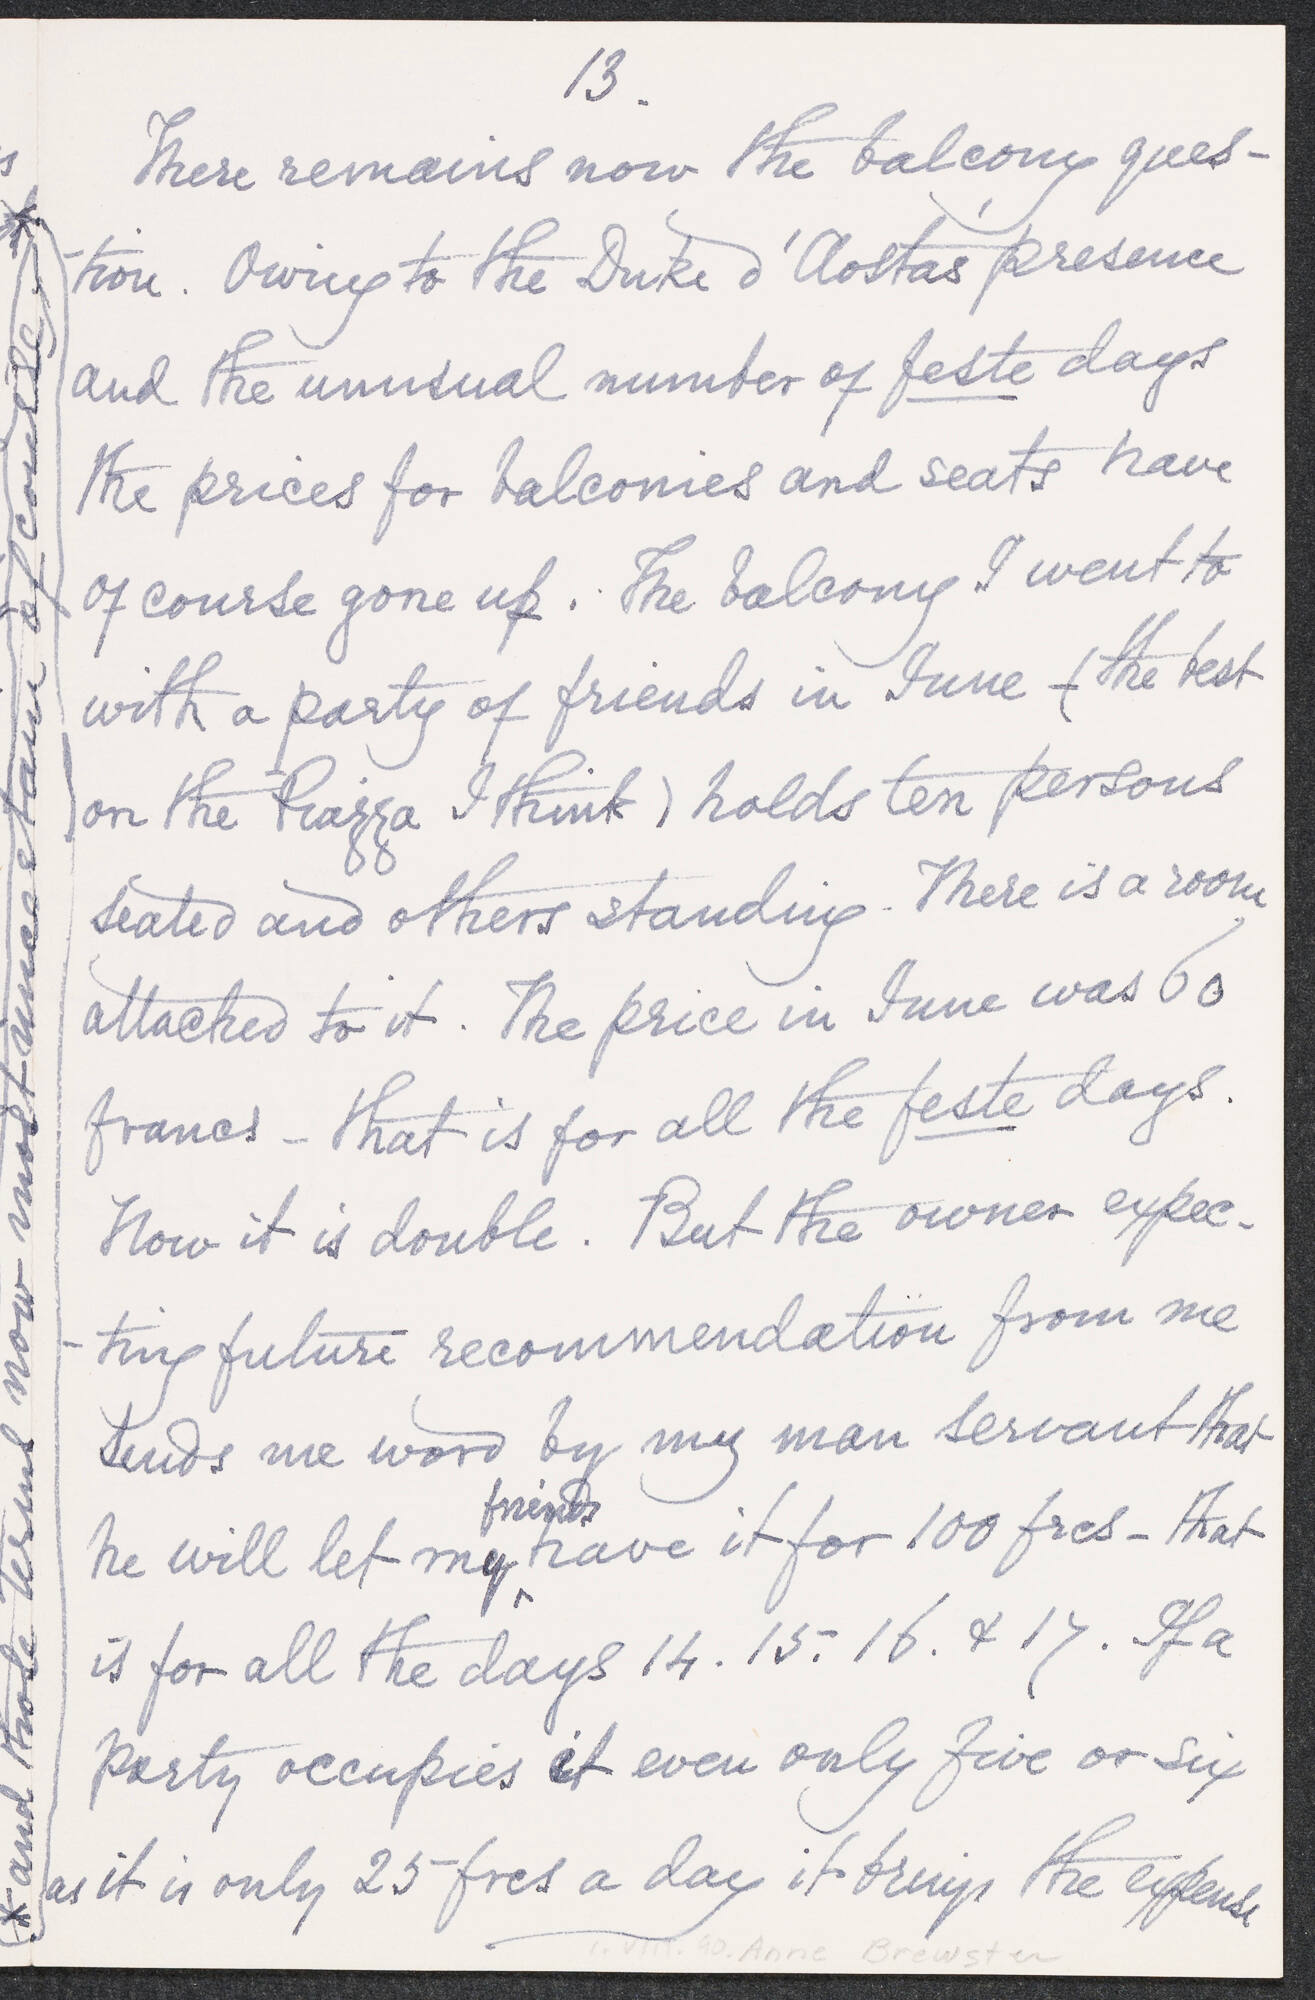 13.
There remains now the balcony ques-
-tion. Owing to the Duke d'Aosta's presence
and the unusual number of feste days
the prices for balconies and seats have
of course gone up. The balcony I went to
with a party of friends in June - (the best
on the Piazza I think) holds ten persons
seated and others standing. There is a room
attached to it. The price in June was 60
francs - that is for all the feste days.
Now it is double. But the owner expec-
-ting future recommendation from me
sends me word by my man servant that
friends
he will let my have it for 100 frcs - that
is for all the days 14. 15. 16. & 17. If a
party occupies it even only five or six
as it is only 25 frcs a day it brings the expense
1. VIII. 90. Anne Brewster
* and those terms now most uncertain of course *